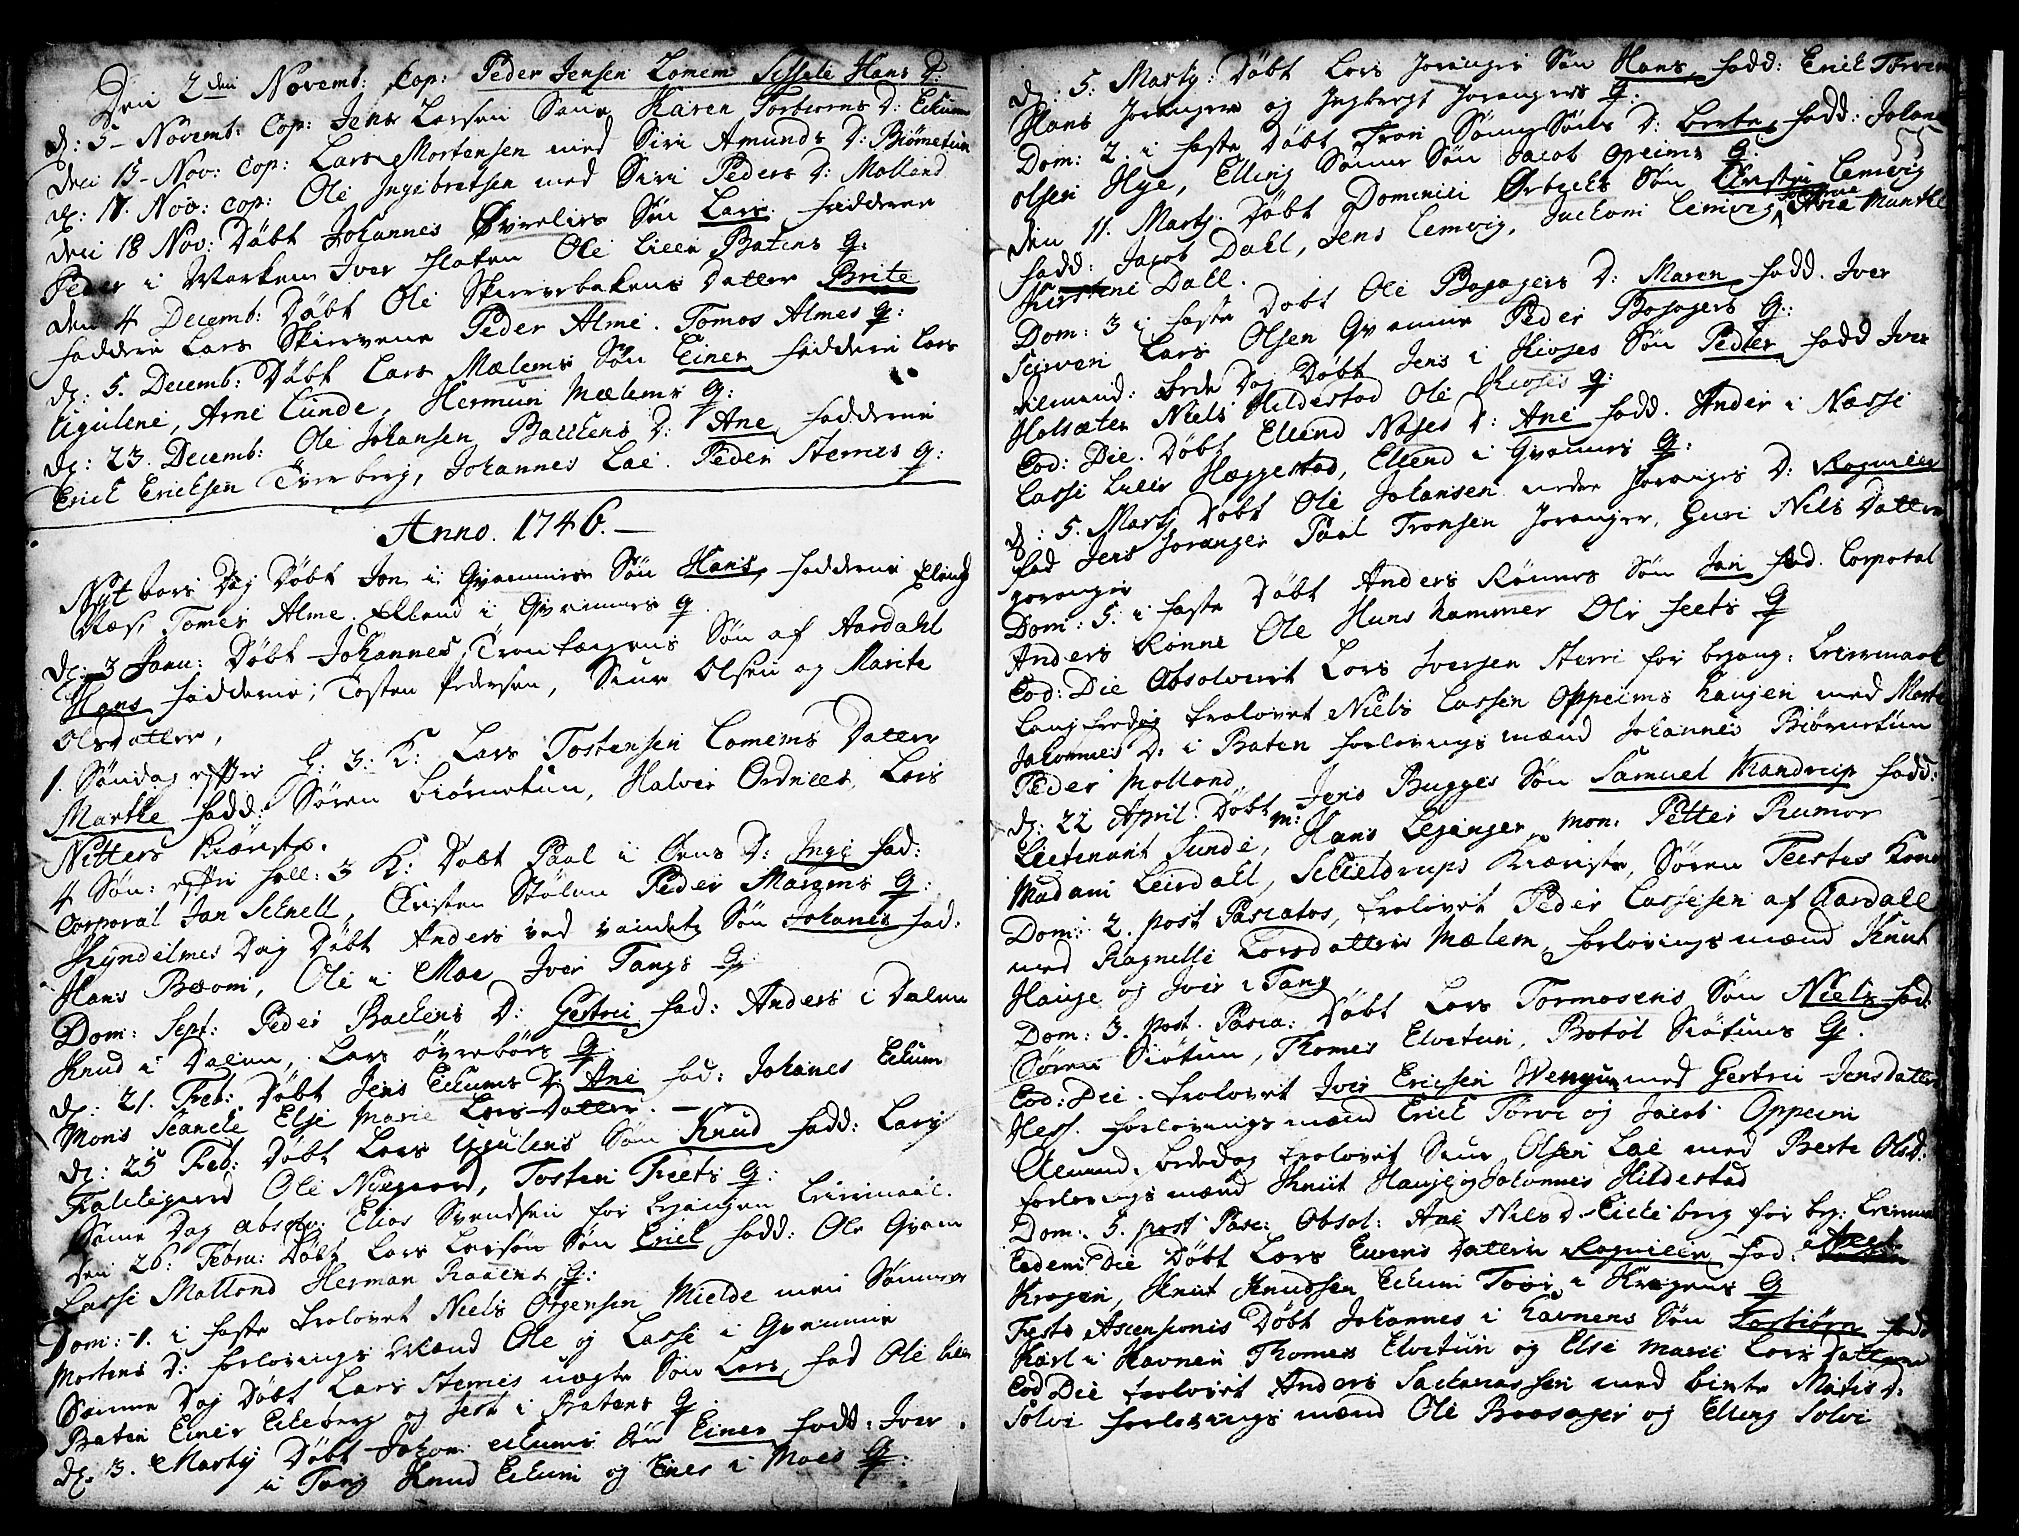 Den 2den Novemb: Cop: Peder Jensen Lomem Sissele Hans D:
d: 5 - Novemb: Cop: Jens Larsen Karen Torbiørns D: Eckum
den 15 - Nov: Cop: Lars Mortensen med Siri Amunds D: Biørnetun
d: 17. Nov: Cop: Ole Ingebretsen med Siri Peders D: Molland
den 18 Nov: Døbt Johannes Øvrelies Søn Lars. Faddere
Peder i Marken Iver Floten Ole Lille Batens Q:
den 4 Decemb: Døbt Ole Skierrebakens Datter Brite
Faddere Lars Skierrene Peder Alme. Tomos Almes Q:
d: 5. Decemb: Døbt Lars Mælems Søn Einer Faddere Lars
Ugulene, Arne Lunde, Hermun Mælems Q:
d: 23. Decemb: Ole Johansen Backens D: Ane Faddere
Erick Ericksen Tverberg, Johannes Lae. Peder Sterres Q:
Anno. 1746. —
Nyt Aars Dag Døbt Jon i Gvammes Søn Hans, Faddere Eling
Næss Tomes Alme. Ellend i Gvammes Q
d: 3 Janu: Døbt Johannes, Søn af Aardahl
Hans Faddere; Tosten Pedersen, Siur Olsen og Marite
Olsdatter,
1. Søndag efter H. 3: K: Lars Tostensen Lomems Datter
Marthe Fadd: Søren Biørnetun, Halvor Ordnees, Lars
Nitters Kiæriste.
4 Søn: efter Hell: 3 K: Døbt Paal i Ørens D: Inge Fad:
Corporal Jan Schnell, Christen Stølen Peder Margems Q:
Kyndelmes Dag Døbt Anders ved Søn Johanes Fad:
Hans Broom, Ole i Moe Iver Tangs Q:
Dom: Sept: Peder Backens D: Gertru Fad: Anders i Dalen
Knud i Dalen, Lars Øvrebøes Q:
d: 21. Feb: Døbt Jens Eckums D: Ane Fad: Johanes Eckum
Mons Else Marie Lars Datter. —
d: 25 Feb: Døbt Lars Ugulens Søn Knud Fadd: Lars
Ole Niegaard, Tosten Treets Q:
Same Dag absolv: Elias Svendsen for Leiermaal.
Den 26. Febru: Døbt Lars Larsøn Søn Erick Fadd: Ole Gvam
Lasse Molland Herman Raaens Q:
Dom: 1. i Faste Trolovet Niels Ørgensen Mielde med Sønneve
Mortens D: Forlovings Mænd Ole og Lasse i Gvamme
Samme Dag Døbt Lars Sterres uægte Søn Lars, Fad Ole Lille
Baten Einer Eickeberg og i Batens Q
d. 3. Martij Døbt Johan: Eckums Søn Einer Fadd: Iver
i Tang Knud Eckum og Einer i Moes Q:
d: 5. Martij: Døbt Lars Joranger Søn Hans Fadd: Erick Torven
Hans Joranger og Ingborgt Jorangers Q:
Dom: 2 i Faste Døbt Tron Sønne Søns D: Berte, Fadd: Johan
55
Olsen Hye, Elling Sønne Søn Jacob Opeims Q:
den 11. Martj: Døbt Dominici Ørbecks Søn Christen Lemvig
Fadd: Jacob Dahl, Jens Lemvig, Jackom Lemvig, Jomfrue Munthe
Kirstene Dall.
Dom: 3 i Faste Døbt Ole Bogagers D: Maren, Fadd. Iver
Scirven Lars Olsen Gvamme Peder Bogagers Q:
almind: Bede Dag Døbt Jens i Hioges Søn Peder Fadd Iver
Holsæter Niels Hildestad Ole Hioges Q:
Eod: Die. Døbt Ellend Noses D: Ane Fadd. Ander i Nasse
Lasse Lille Hæggestad, Ellend i Gvammes Q:
d: 5. Martj Døbt Ole Johansen nedre Joranges D: Ragnille
Fad Jens Joranger Paal Tronsen Joranger, Guri Niels Datter
Joranger
Dom: 5. i Faste Døbt Anders Rønnes Søn Jan Fad. Corporal
Anders Rønne Ole Huns hammer Ole Feets Q
Eod: Die Absolveret Lars Iversen Sterre for begang: Leiermaal
Langfredag trolovet Niels Lassen Oppeims Haugen med Marte
Johannes D: i Baten Forlovings mænd Johannes Biørnetun
Peder Molland
d: 22 April. Døbt Mr: Jens Bugges Søn Samuel Mandrup Fadd:
Lieutenant Funde, Hans Leganger, Mon: Petter Rumor
Madam Leirdahl, Schieldrups Kiæriste, Søren Teistes Kone
Dom: 2. post Pascatos, trolovet Peder Lassesen af Aardall
med Ragnille Larsdatter Mælem, Forlovings mænd Knut
Hauge og Iver i Tang
Dom: 3. post. Pasca: Døbt Lars Tormosens Søn Niels Fad:
Søren Siøtun, Thomes Elvetun, Botol Siøtuns Q.
Eod: Die. trolovet Iver Ericsen Wengum med Gertru Jensdatter
Hess. Forlovings mænd Erick Torve og Jacob Oppeim
Almind. Bededag trolovet Siur Olsen Lae med Berte Olsd:
Forlovings mænd Knut Hauge og Johannes Hildestad
Dom: 5. post Pasc: Absol: Ane Niels D. Eickeberg for beg: Leierm
Eodem Die Døbt Lars Eurens Datter Ragnille Fad: Axel
Kragen, Knut Knudsen Eckum i Kragens Q
Festo Ascensionis Døbt Johannes i Havnens Søn Torbiørn Fadd
Karl i Havnen Thomes Elvetun og Else Marie Lars Datter
Eod Die trolovet Anders Sackariassen med Birte Matis D:
Solve Forlovings mænd Ole Boosager og Elling Solve